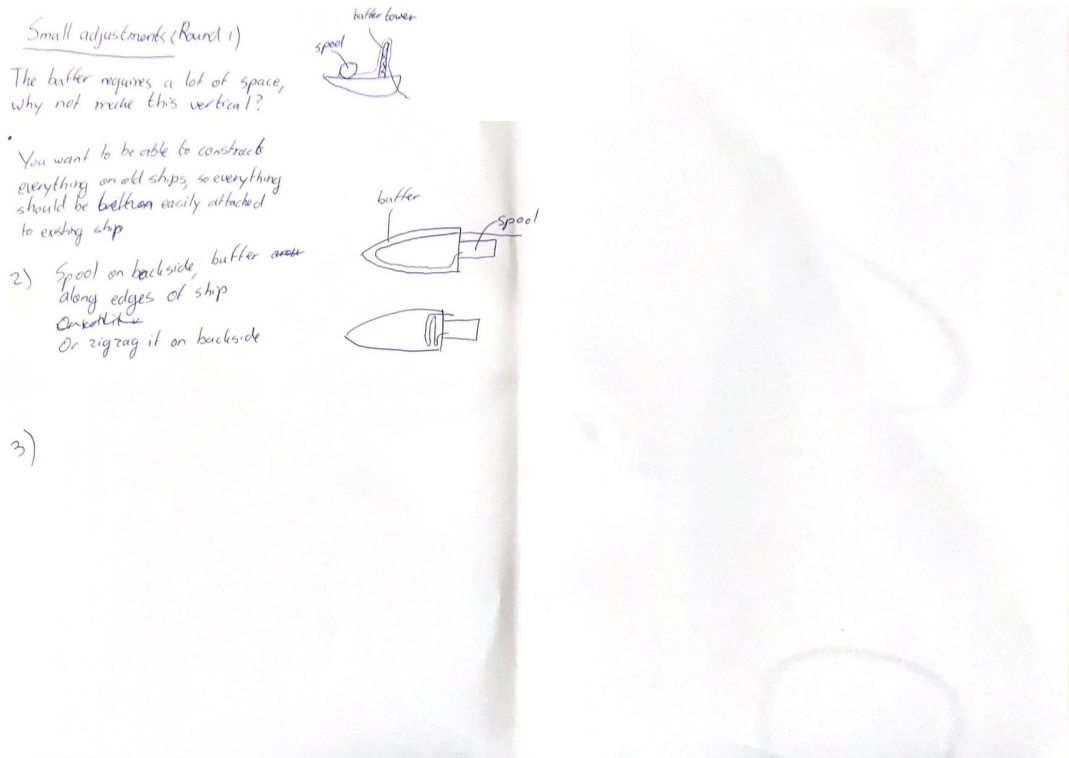 Small adjustments (Round 1)
buffer tower
spool
The buffer requires a lot of space,
why not make this vertical?
You want to be able to construct
everything on old ships, so everything
should be easily attached
to existing ship
buffer
spool
2) Spool on backside, buffer
along edges of ship
Or zigzag it on backside
3)